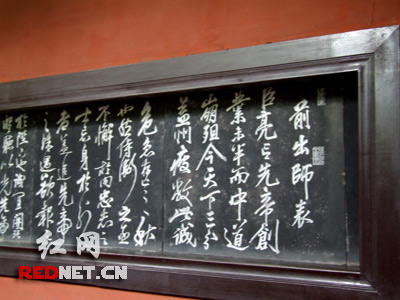 前出師表
臣亮言先帝創
業未半而中道
崩殂今天下三分
益州疲敝此誠
危急存亡之秋
也然侍衛之臣
不懈於內忠志之
士忘身於外
者蓋追先帝
之殊遇欲報
於陛下也誠宜開張
聖聽以光先帝
红网
REDNET.CN